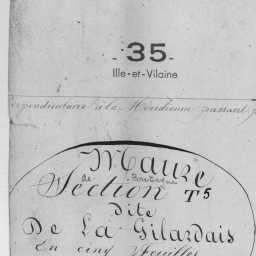 - 35 -
Ille-et-Vilaine
perpendiculaire à la Méridienne passant
Maure
de Bretagne
Section T5
Dite
De La Gilardais
En cinq feuilles